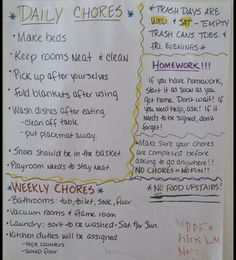 *DAILY CHORES*
• Make beds
• Keep rooms neat & clean
• Pick up after yourselves
• Fold blankets after using
• Wash dishes after eating.
- Clean off table
- put placemat away.
• Shoes should be in the basket.
• Playroom needs to stay neat.
*WEEKLY CHORES*
• Bathrooms: tub, toilet, sink, floor
• Vacuum rooms & game room
• Laundry: sort to be washed - Sat. &/or Sun.
• Kitchen duties will be assigned
- wipe counters
- Sweep floor
* TRASH DAYS ARE
WED. & SAT - EMPTY
TRASH CANS TUES. &
FRI. EVENINGS *
HOMEWORK!!!
If you have homework,
start it as soon as you
get home. Don't wait! If
you need help, ask! If it
needs to be signed, don't
forget!
* Make sure your chores
are completed before
asking to go anywhere!!
NO CHORES = NO FUN!!
* NO FOOD UPSTAIRS!